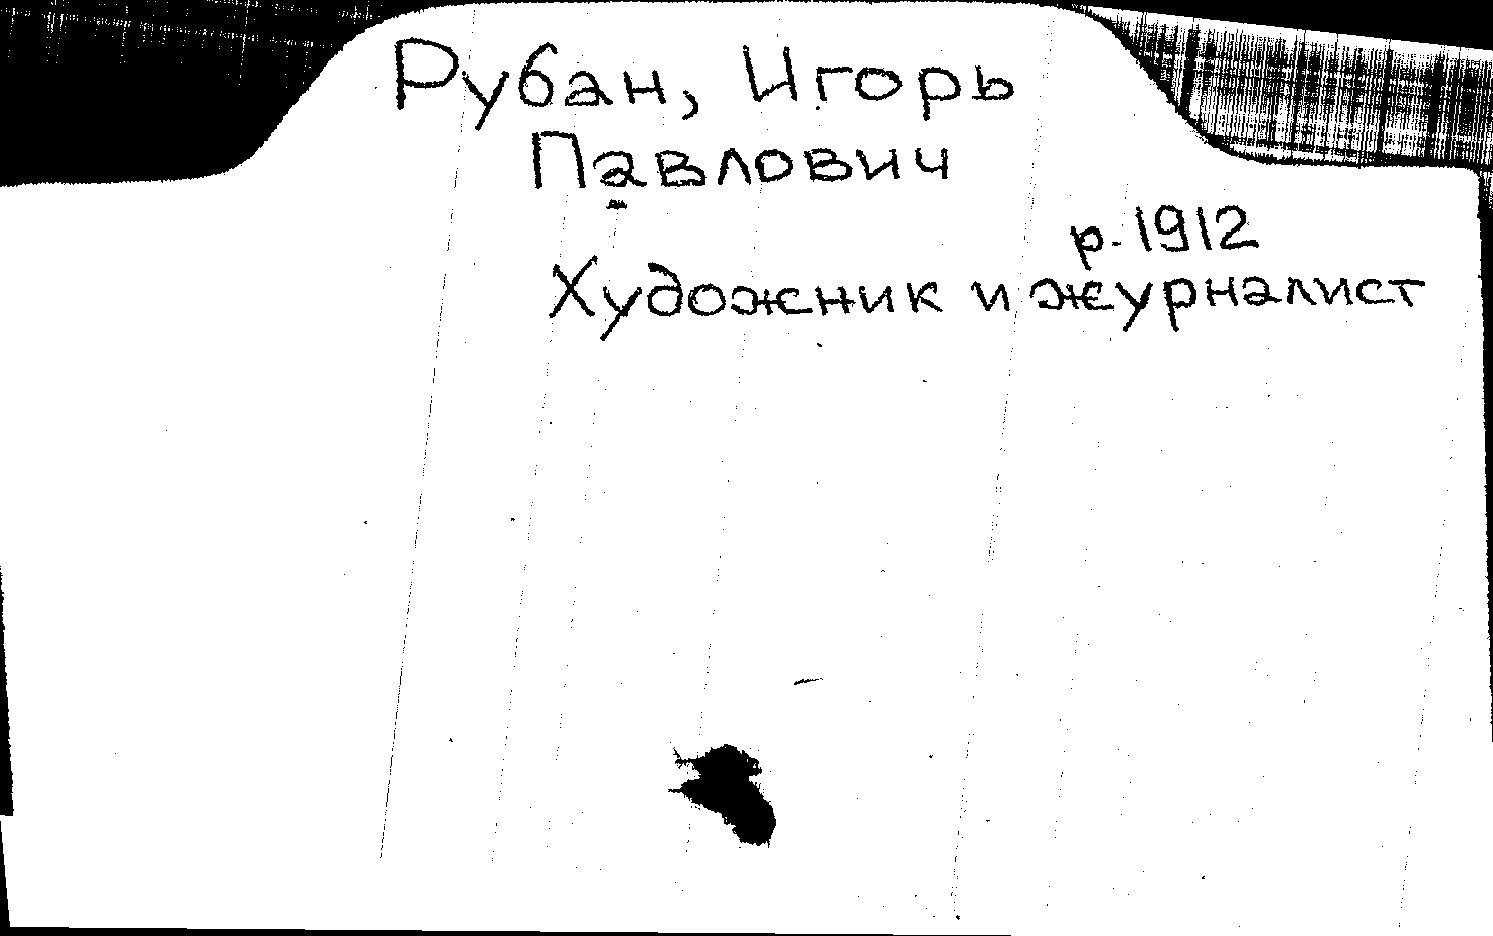 Рубан, Игорь
Павлович
р. 1912
Художник и журналист